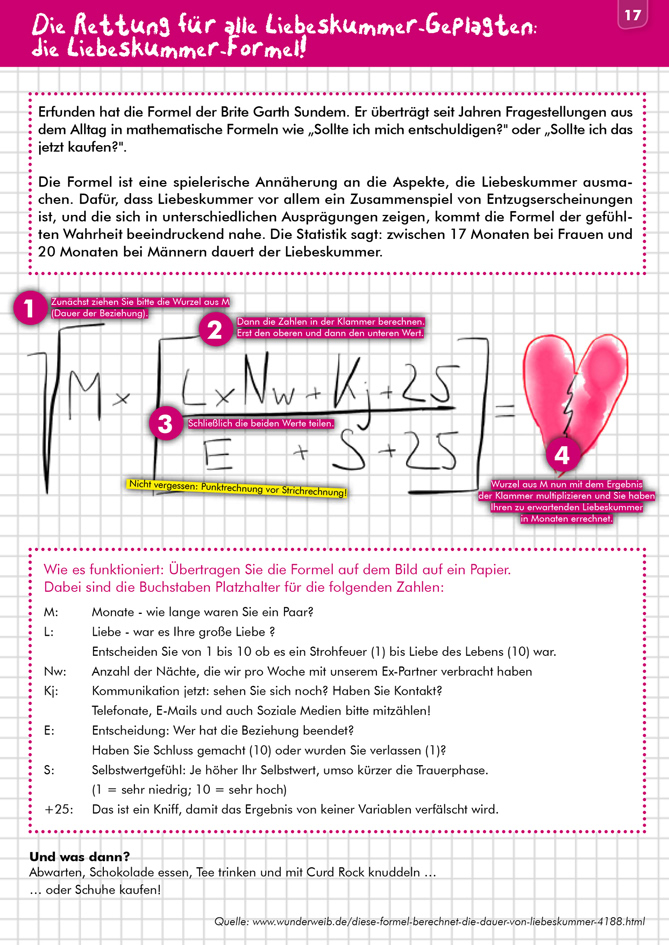 Die Rettung für alle Liebeskummer-Geplagten:
die Liebeskummer-Formel!
17
Erfunden hat die Formel der Brite Garth Sundem. Er überträgt seit Jahren Fragestellungen aus
dem Alltag in mathematische Formeln wie „Sollte ich mich entschuldigen?" oder „Sollte ich das
jetzt kaufen?".
Die Formel ist eine spielerische Annäherung an die Aspekte, die Liebeskummer ausma-
chen. Dafür, dass Liebeskummer vor allem ein Zusammenspiel von Entzugserscheinungen
ist, und die sich in unterschiedlichen Ausprägungen zeigen, kommt die Formel der gefühl-
ten Wahrheit beeindruckend nahe. Die Statistik sagt: zwischen 17 Monaten bei Frauen und
20 Monaten bei Männern dauert der Liebeskummer.
1
Zunächst ziehen Sie bitte die Wurzel aus M
(Dauer der Beziehung).
2
Dann die Zahlen in der Klammer berechnen.
Erst den oberen und dann den unteren Wert.
√M x [L x Nw + Kj + 25
3
Schließlich die beiden Werte teilen.
E + S + 25] =
4
Nicht vergessen: Punktrechnung vor Strichrechnung!
Wurzel aus M nun mit dem Ergebnis
der Klammer multiplizieren und Sie haben
Ihren zu erwartenden Liebeskummer
in Monaten errechnet.
Wie es funktioniert: Übertragen Sie die Formel auf dem Bild auf ein Papier.
Dabei sind die Buchstaben Platzhalter für die folgenden Zahlen:
M: Monate - wie lange waren Sie ein Paar?
L: Liebe - war es Ihre große Liebe ?
Entscheiden Sie von 1 bis 10 ob es ein Strohfeuer (1) bis Liebe des Lebens (10) war.
Nw: Anzahl der Nächte, die wir pro Woche mit unserem Ex-Partner verbracht haben
Kj: Kommunikation jetzt: sehen Sie sich noch? Haben Sie Kontakt?
Telefonate, E-Mails und auch Soziale Medien bitte mitzählen!
E: Entscheidung: Wer hat die Beziehung beendet?
Haben Sie Schluss gemacht (10) oder wurden Sie verlassen (1)?
S: Selbstwertgefühl: Je höher Ihr Selbstwert, umso kürzer die Trauerphase.
(1 = sehr niedrig; 10 = sehr hoch)
+25: Das ist ein Kniff, damit das Ergebnis von keiner Variablen verfälscht wird.
Und was dann?
Abwarten, Schokolade essen, Tee trinken und mit Curd Rock knuddeln …
… oder Schuhe kaufen!
Quelle: www.wunderweib.de/diese-formel-berechnet-die-dauer-von-liebeskummer-4188.html